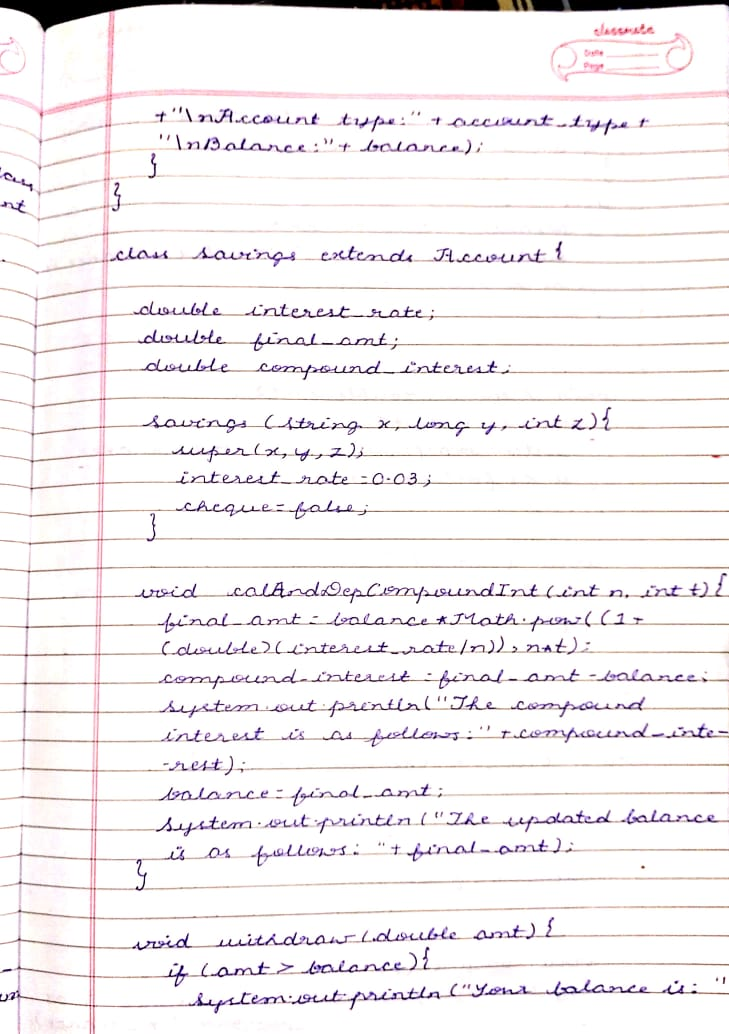 classmate
Date
Page
+"\nAccount type:" + account_type +
"\nBalance:"+ balance);
}
}
class savings extends Account {
double interest_rate;
double final_amt;
double compound_interest;
savings (string x, long y, int z){
super(x, y, z);
interest_rate = 0.03;
cheque = false;
}
void calAndDepCompoundInt (int n, int t) {
final_amt = balance * Math.pow((1+
(double)(interest_rate/n)), n*t);
compound_interest = final_amt - balance;
system.out.println("The compound
interest is as follows:" + compound_inte-
-rest);
balance = final_amt;
system.out.println ("The updated balance
is as follows: "+ final_amt);
}
void withdraw (double amt) {
if (amt > balance){
system.out.println ("Your balance is: "